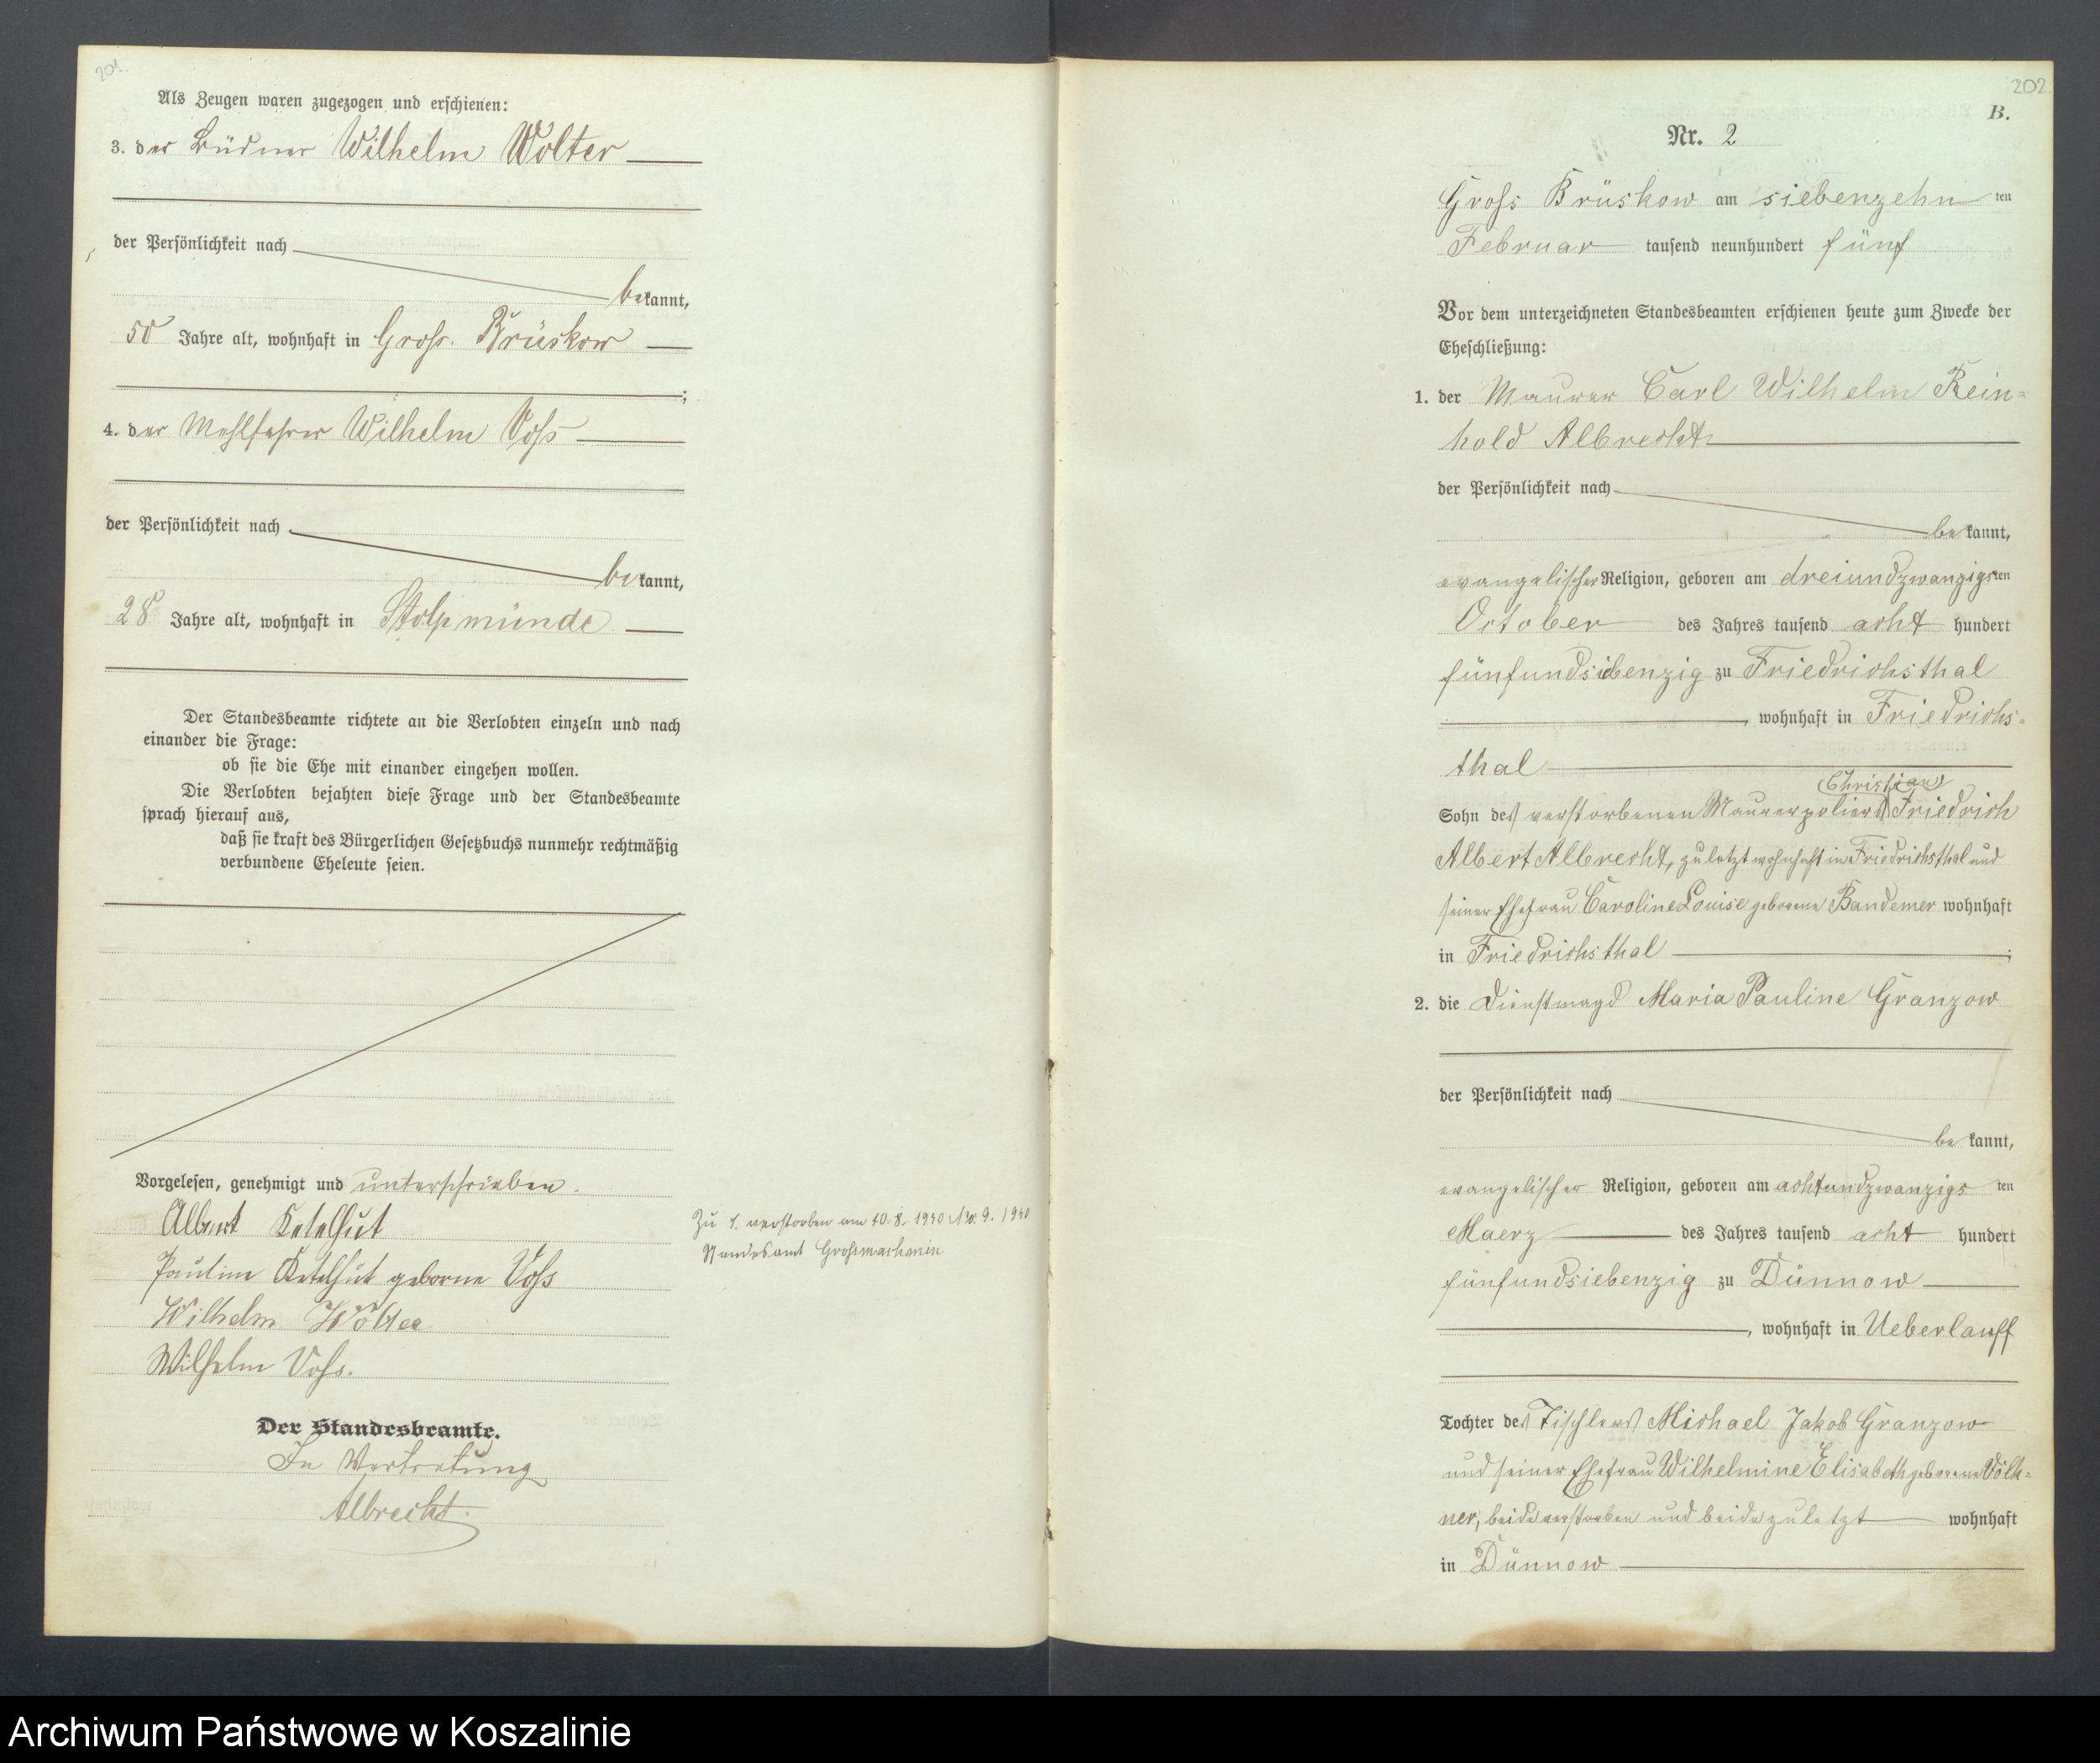 201.
Als Zeugen waren zugezogen und erschienen:
3. der Büdner Wilhelm Wolter
der Persönlichkeit nach
bekannt,
50 Jahre alt, wohnhaft in Gross. Brüskow
;
4. der Mehlfahrer Wilhelm Voss
der Persönlichkeit nach
bekannt,
28 Jahre alt, wohnhaft in Stolpmünde
Der Standesbeamte richtete an die Verlobten einzeln und nach
einander die Frage:
ob sie die Ehe mit einander eingehen wollen.
Die Verlobten bejahten diese Frage und der Standesbeamte
sprach hierauf aus,
daß sie kraft des Bürgerlichen Gesetzbuchs nunmehr rechtmäßig
verbundene Eheleute seien.
Vorgelesen, genehmigt und unterschrieben.
Albert Ketelhut
Pauline Ketelhut geborne Voss
Wilhelm Wolter
Wilhelm Voss.
Der Standesbeamte.
In Vertretung
Albrecht.
Zu 1. verstorben am 10.8.1940 No. 9. /1940
Standesamt
202
B.
Nr. 2
Gross Brüskow am siebenzehnten
Februar tausend neunhundert fünf
Vor dem unterzeichneten Standesbeamten erschienen heute zum Zwecke der
Eheschließung:
1. der Maurer Carl Wilhelm Rein=
hold Albrecht
der Persönlichkeit nach
bekannt,
evangelischer Religion, geboren am dreiundzwanzigsten
October des Jahres tausend acht hundert
fünfundsiebenzig zu Friedrichsthal
, wohnhaft in Friedrichs=
thal
Christian
Sohn des verstorbenen Maurerpoliers Friedrich
Albert Albrecht, zuletzt wohnhaft in Friedrichsthal und
seiner Ehefrau Caroline Louise geborene Bandemer wohnhaft
in Friedrichsthal ;
2. die Dienstmagd Maria Pauline Granzow
der Persönlichkeit nach
bekannt,
evangelischer Religion, geboren am achtundzwanzigsten
Maerz des Jahres tausend acht hundert
fünfundsiebenzig zu Dünnow
, wohnhaft in Ueberlauff
Tochter des Tischlers Michael Jakob Granzow
und seiner Ehefrau Wilhelmine Elisabeth geborene Völk=
ner, beide verstorben und beide zuletzt wohnhaft
in Dünnow
Archiwum Państwowe w Koszalinie